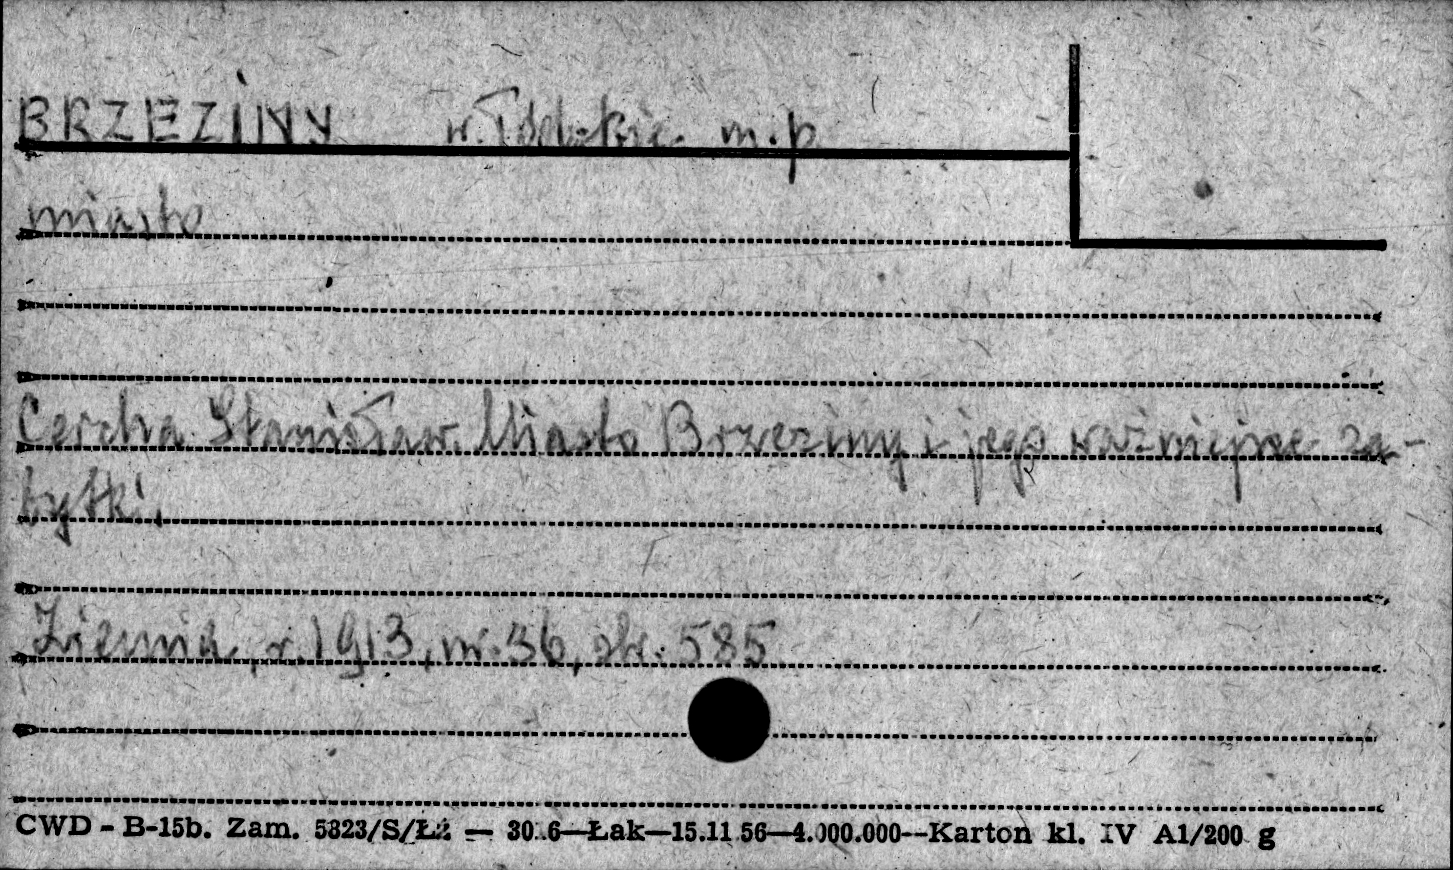 BRZEZINY w. łódzkie m.p
miasto
Cercha Stanisław. Miasto Brzeziny i jego ważniejsze za-
bytki.
Ziemia, r. 1913, nr. 36, str. 585
CWD - B-15b. Zam. 5823/S/Łż — 30..6—Łak—15.11 56—4.000.000—Karton kl. IV A1/200 g